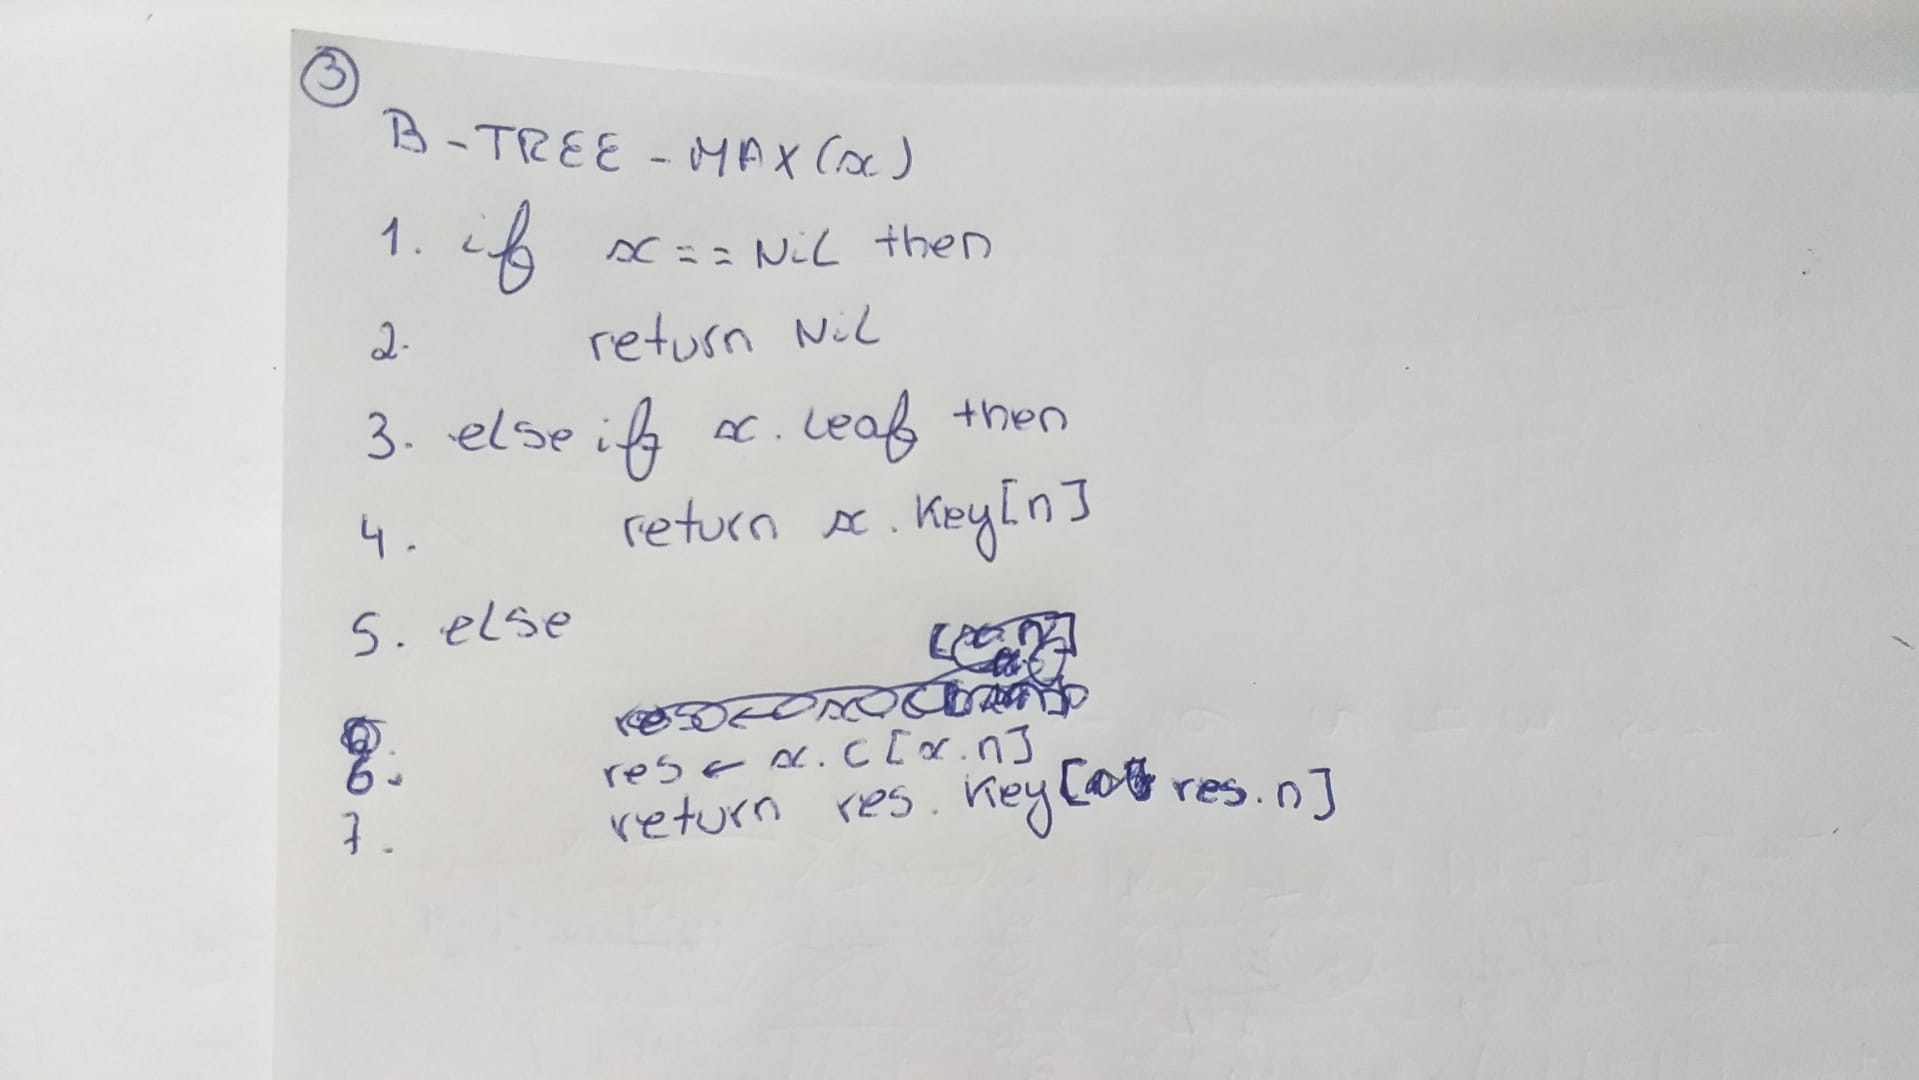 3
B-TREE-MAX(x)
1. if x == NiL then
2. return NiL
3. else if x.leaf then
4. return x.Key[n]
5. else
6. res ← x.c[x.n]
7. return res.Key[res.n]